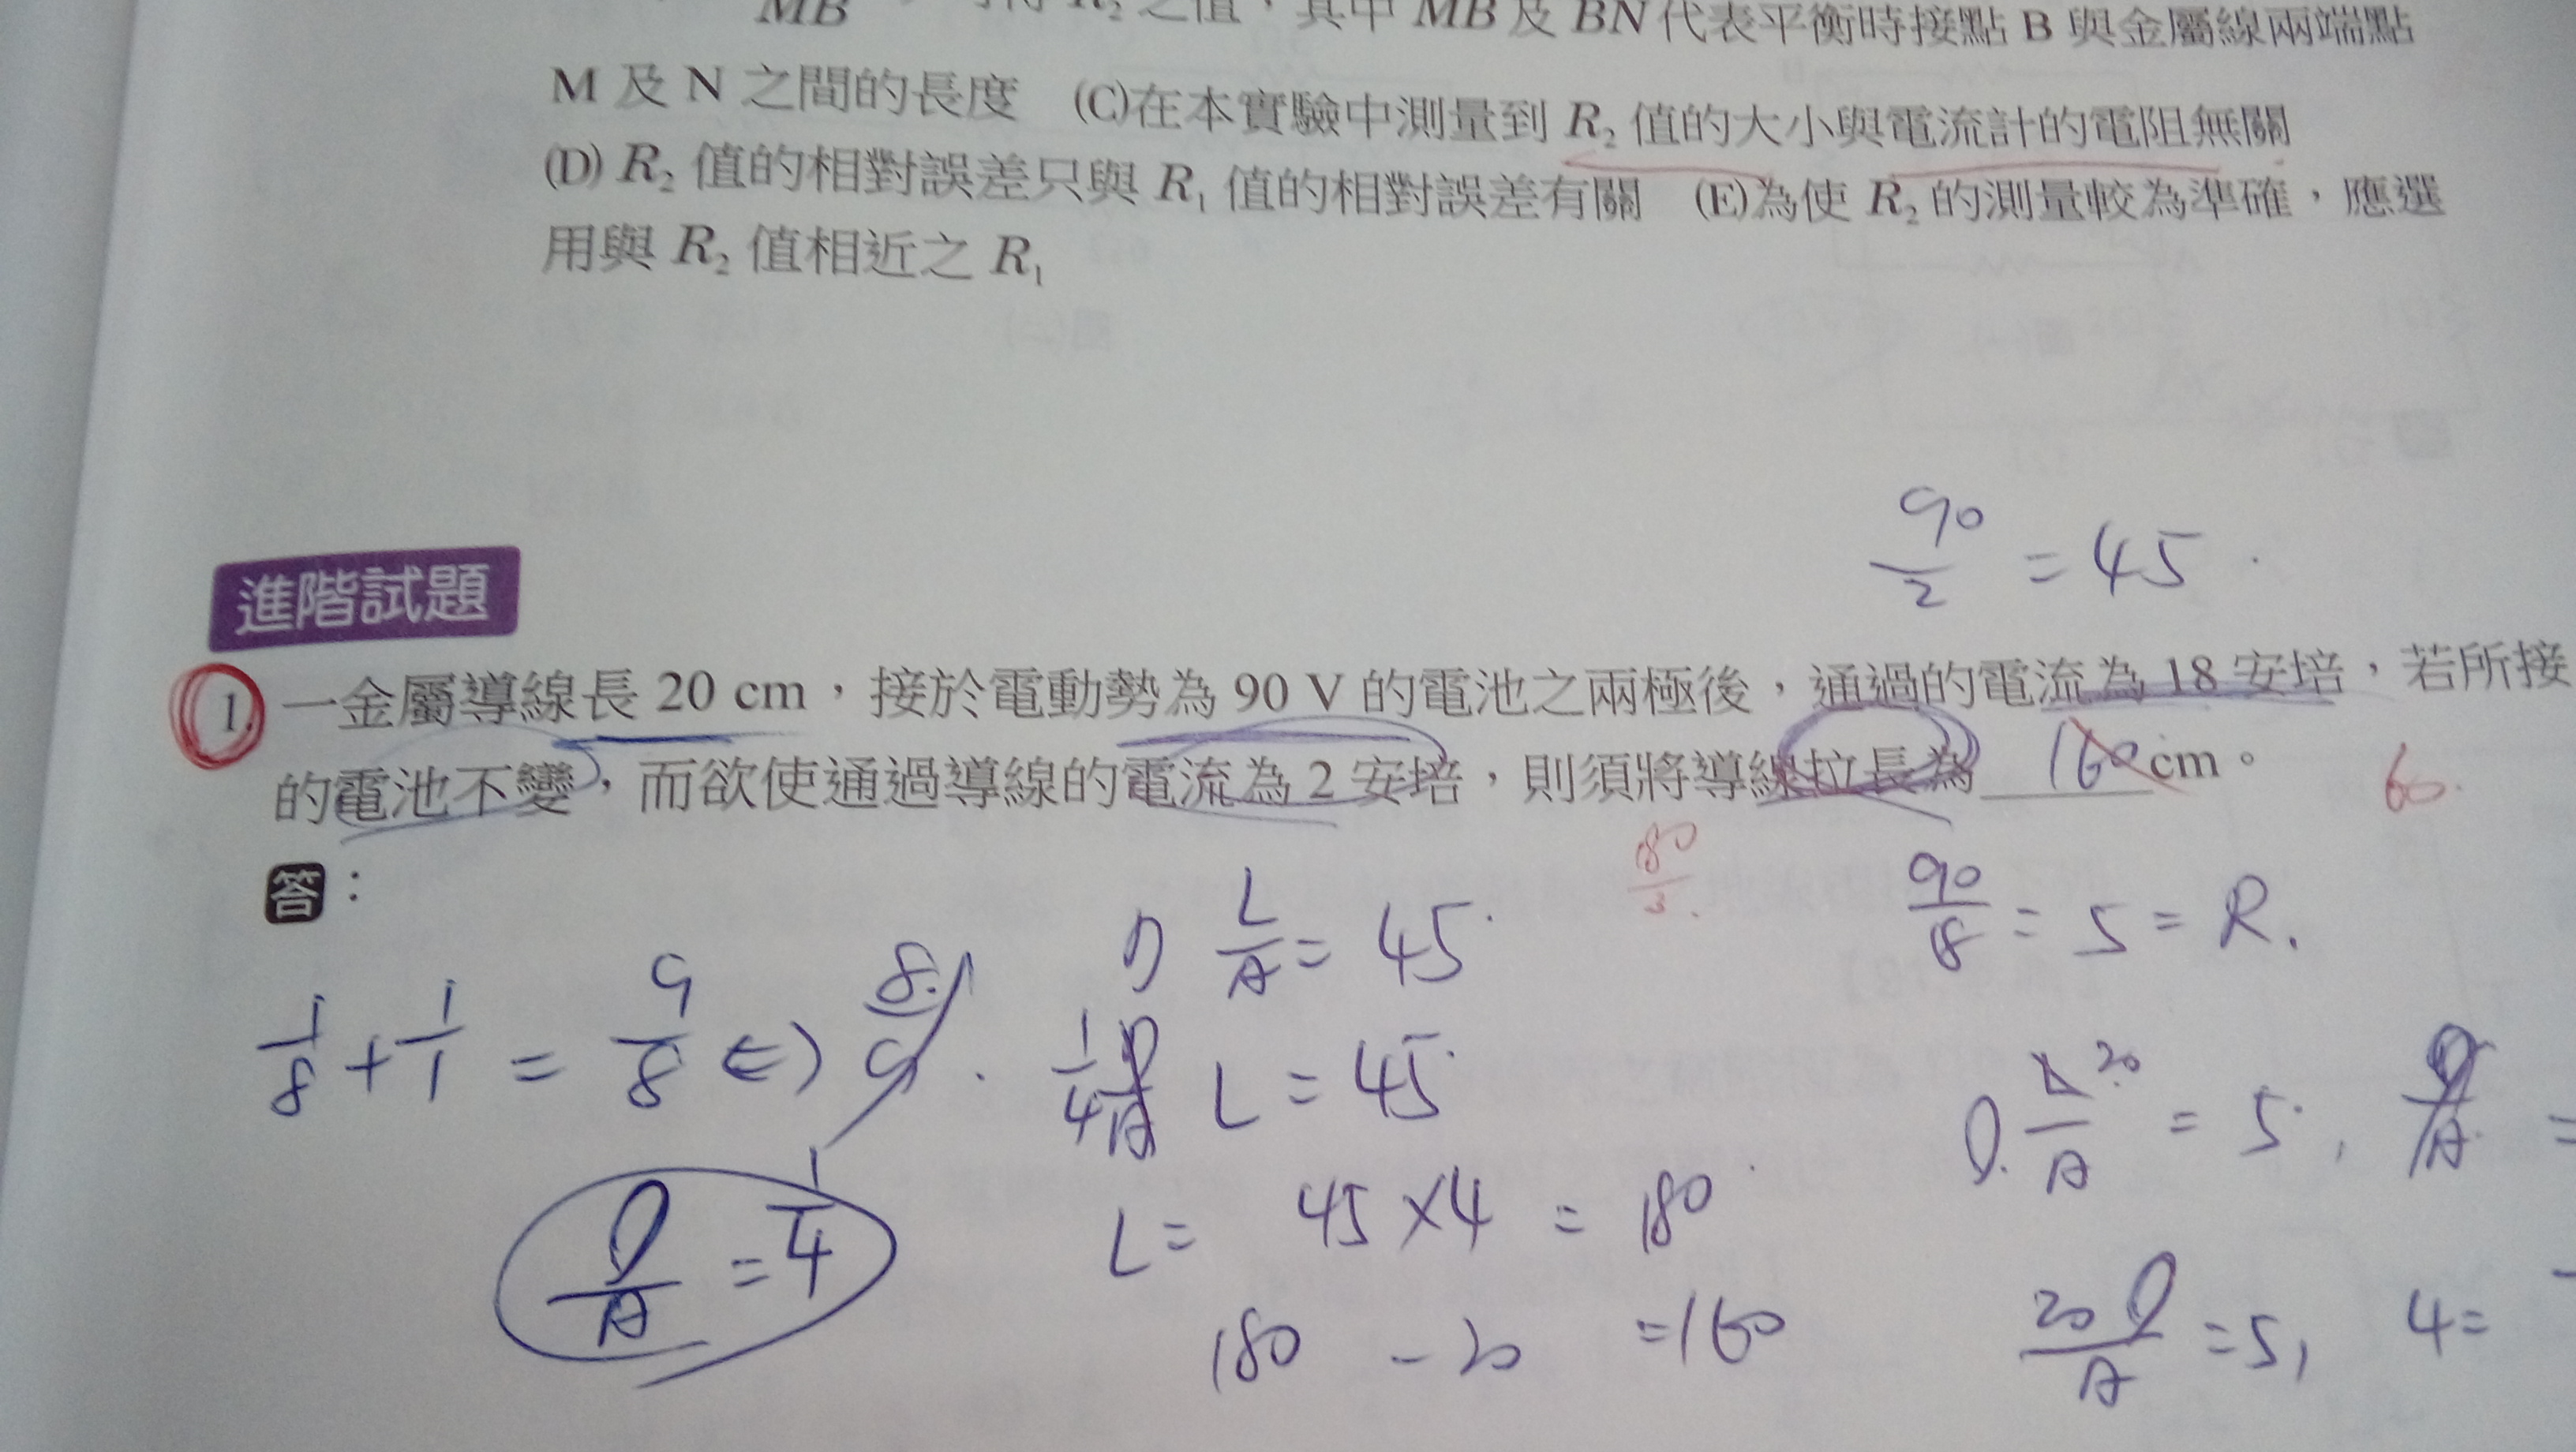 MB 之值，其中 MB 及 BN 代表平衡時接點 B 與金屬線兩端點
M 及 N 之間的長度 (C)在本實驗中測量到 R₂ 值的大小與電流計的電阻無關
(D) R₂ 值的相對誤差只與 R₁ 值的相對誤差有關 (E)為使 R₂ 的測量較為準確，應選
用與 R₂ 值相近之 R₁
90/2 = 45
進階試題
1. 一金屬導線長 20 cm，接於電動勢為 90 V 的電池之兩極後，通過的電流為 18 安培，若所接
的電池不變，而欲使通過導線的電流為 2 安培，則須將導線拉長為 160 cm。 60.
答：
80/3.
90/18 = 5 = R.
ρ L/A = 45
1/8 + 1/1 = 9/8
1/4 L = 45
20/A = 5
ρ/A = 1/4
L = 45 × 4 = 180
180 - 20 = 160
20ρ/A = 5, 4 =